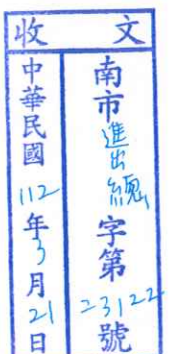 收文
南市進出總字第23122號
中華民國112年3月21日